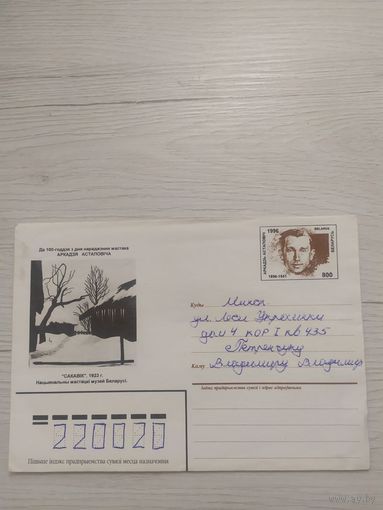 Да 100-годдзя з дня нараджэння мастака
АРКАДЗЯ АСТАПОВІЧА
"САКАВІК". 1923 г.
Нацыянальны мастацкі музей Беларусі.
220020
Пішыце індэкс прадпрыемства сувязі месца назначэння
1996
BELARUS
АРКАДЗЬ АСТАПОВІЧ
БЕЛАРУСЬ
1896-1941
800
Куды Минск
ул. Леси Украинки
дом 4 кор I кв 435
Петренчику
Каму Владимиру Владимир
Індэкс прадпрыемства сувязі і адрас адпраўшчыка
ay.by